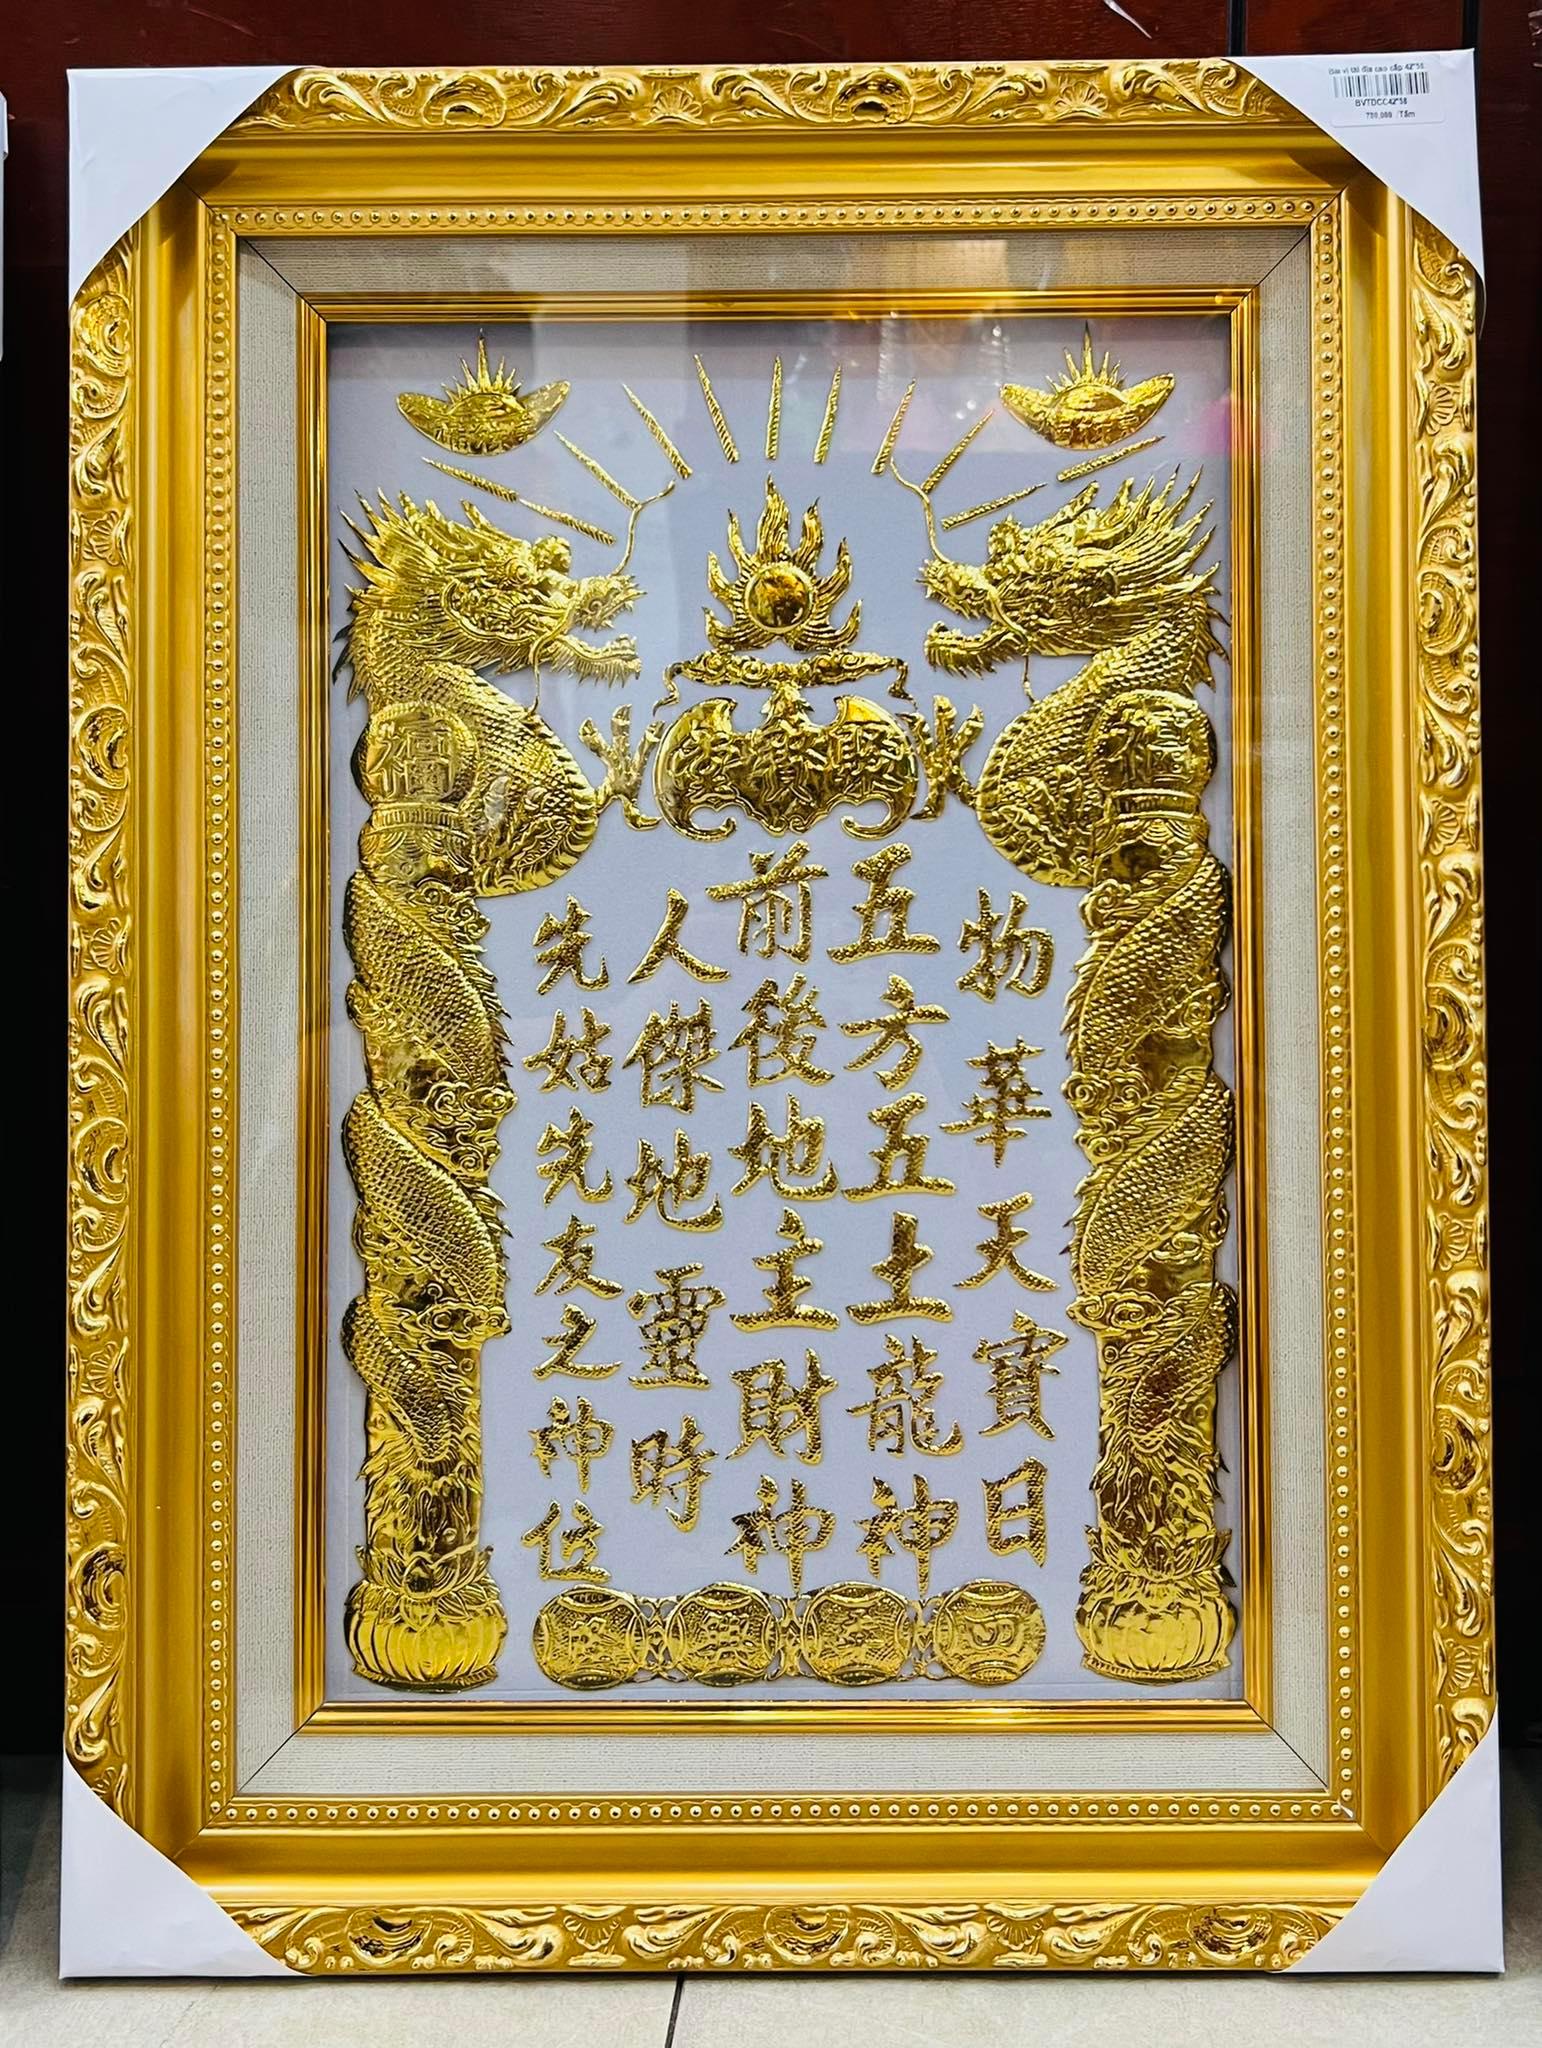 Bài vị tài địa cao cấp 42*58
BVTDCC42*58
780,000 /Tấm
聚寶堂
福
物華天寶日
五方五土龍神
前後地主財神
人傑地靈時
先姑先友之神位